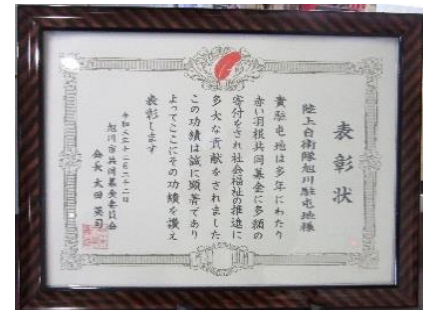 表彰状
陸上自衛隊旭川駐屯地様
貴駐屯地は多年にわたり
赤い羽根共同募金に多額の
寄付をされ社会福祉の推進に
多大な貢献をされました
この功績は誠に顕著であり
よってここにその功績を讃え
表彰します
旭川市共同募金委員会
会長 太田英司